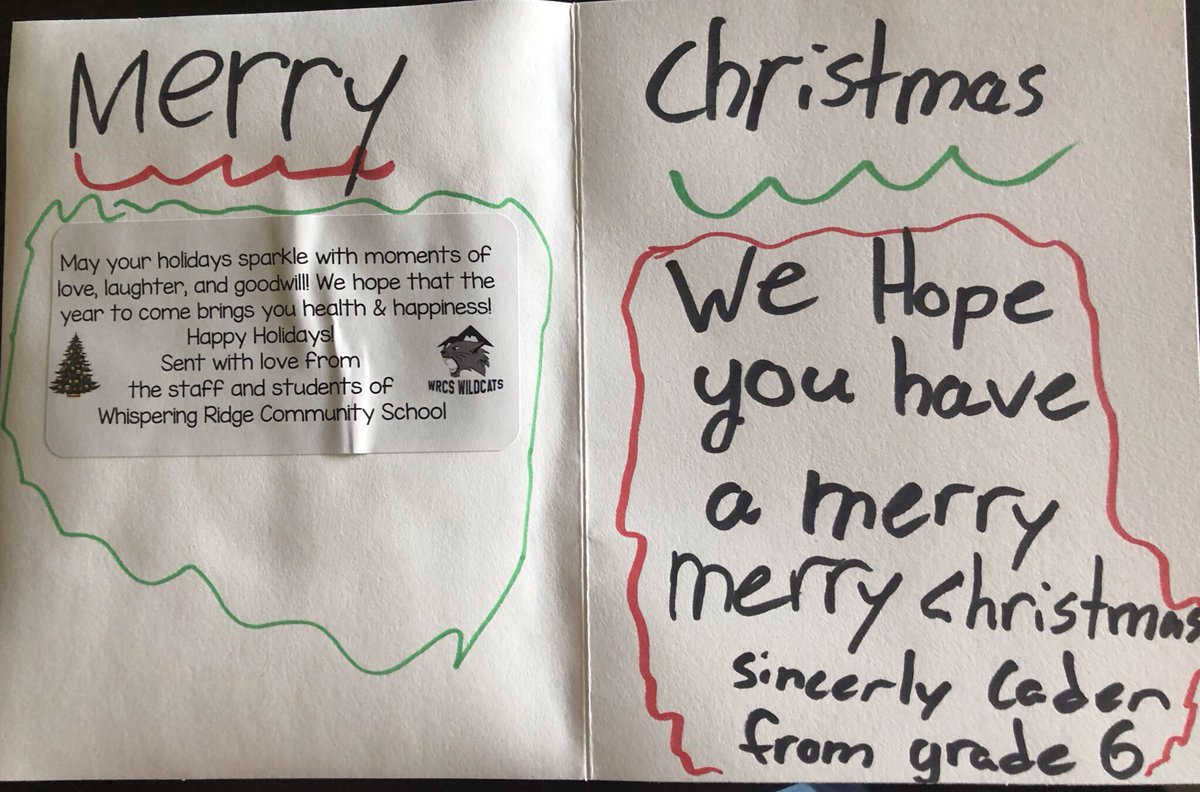 Merry
May your holidays sparkle with moments of
love, laughter, and goodwill! We hope that the
year to come brings you health & happiness!
Happy Holidays!
Sent with love from
the staff and students of
Whispering Ridge Community School
WRCS WILDCATS
Christmas
We Hope
you have
a merry
merry christmas
sincerly Caden
from grade 6